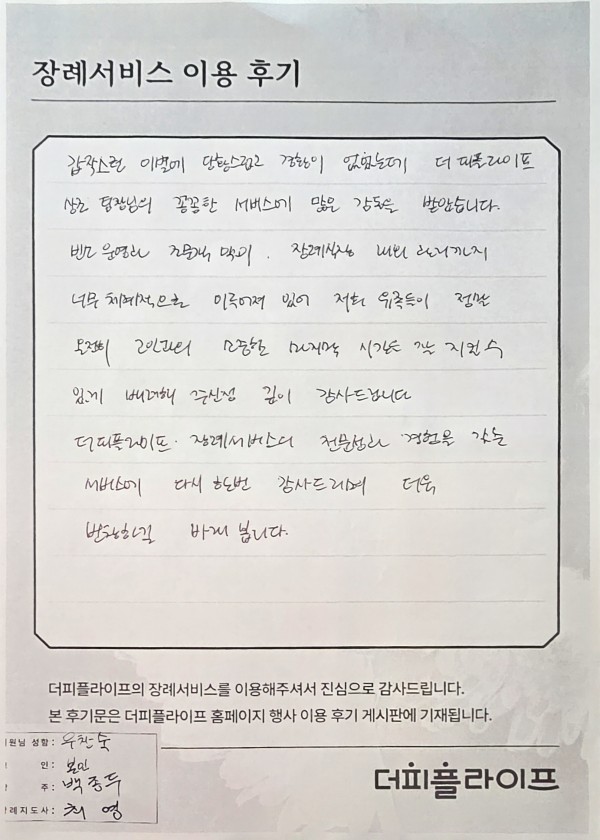 장례서비스 이용 후기
갑작스런 이별에 당황스럽고 경황이 없었는데 더피플라이프
상조 팀장님의 꼼꼼한 서비스에 많은 감동을 받았습니다.
빈소 운영과 조문객 맞이, 장례식장 내외 관리까지
너무 체계적으로 이루어져 있어 저희 유족들이 정말
온전히 고인과의 소중한 마지막 시간을 잘 지킬 수
있게 배려해 주신점 깊이 감사드립니다
더피플라이프 장례서비스의 전문성과 경험을 갖춘
서비스에 다시 한번 감사드리며 더욱
번창하길 바래 봅니다.
더피플라이프의 장례서비스를 이용해주셔서 진심으로 감사드립니다.
본 후기문은 더피플라이프 홈페이지 행사 이용 후기 게시판에 기재됩니다.
원님 성함: 우찬숙
인: 본인
주: 백종두
례지도사: 최영
더피플라이프